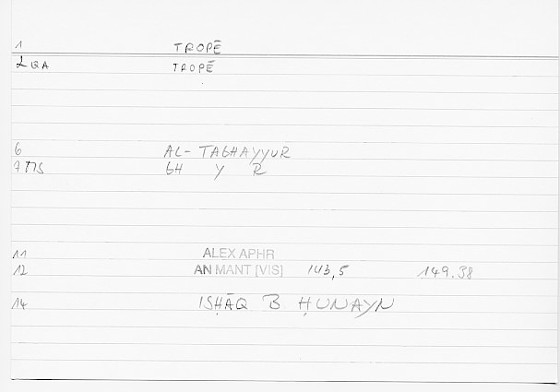 1 TROPĒ
2 QA TROPĒ
6 AL-TAGHAYYUR
7 TTS GH Y R
11 ALEX APHR
12 AN MANT [VIS] 143,5 149.38
14 ISḤĀQ B ḤUNAYN